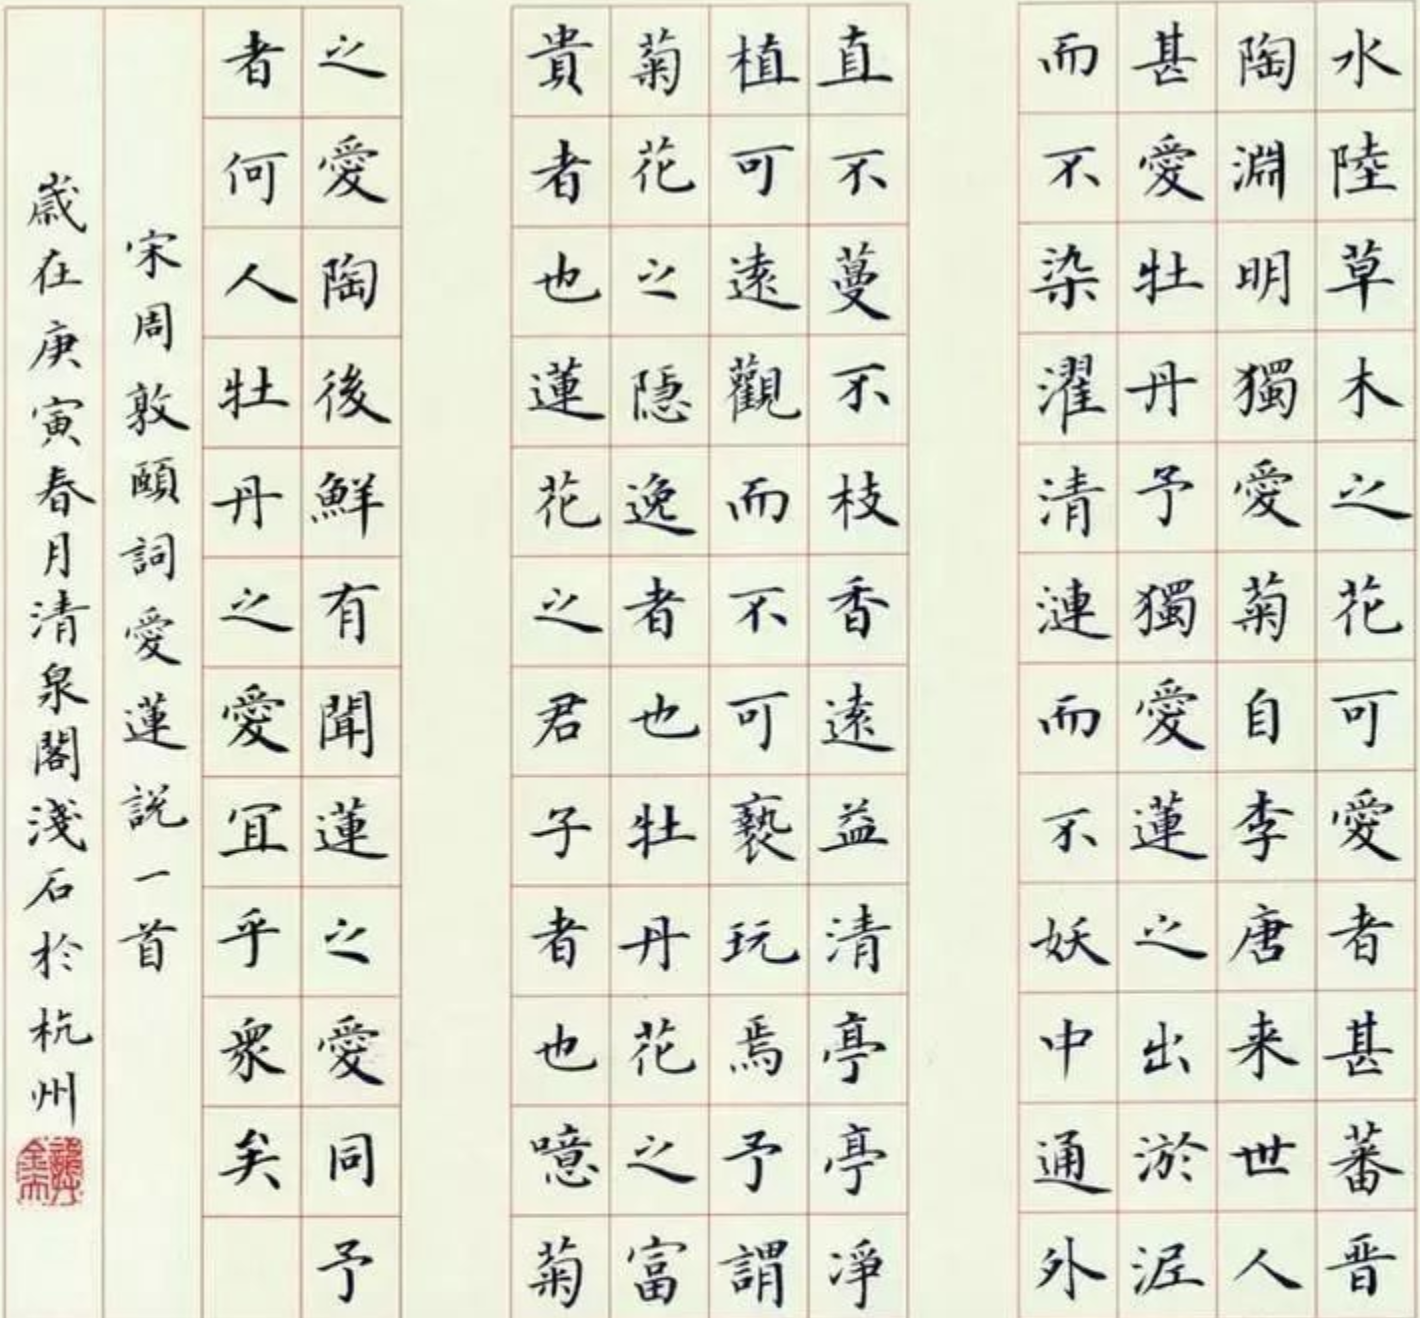 水陸草木之花可愛者甚蕃晋
陶淵明獨愛菊自李唐来世人
甚愛牡丹予獨愛蓮之出淤泥
而不染濯清漣而不妖中通外
直不蔓不枝香遠益清亭亭淨
植可遠觀而不可褻玩焉予謂
菊花之隠逸者也牡丹花之富
貴者也蓮花之君子者也噫菊
之愛陶後鮮有聞蓮之愛同予
者何人牡丹之愛冝乎衆矣
宋周敦頤詞愛蓮說一首
歲在庚寅春月清泉閣淺石於杭州